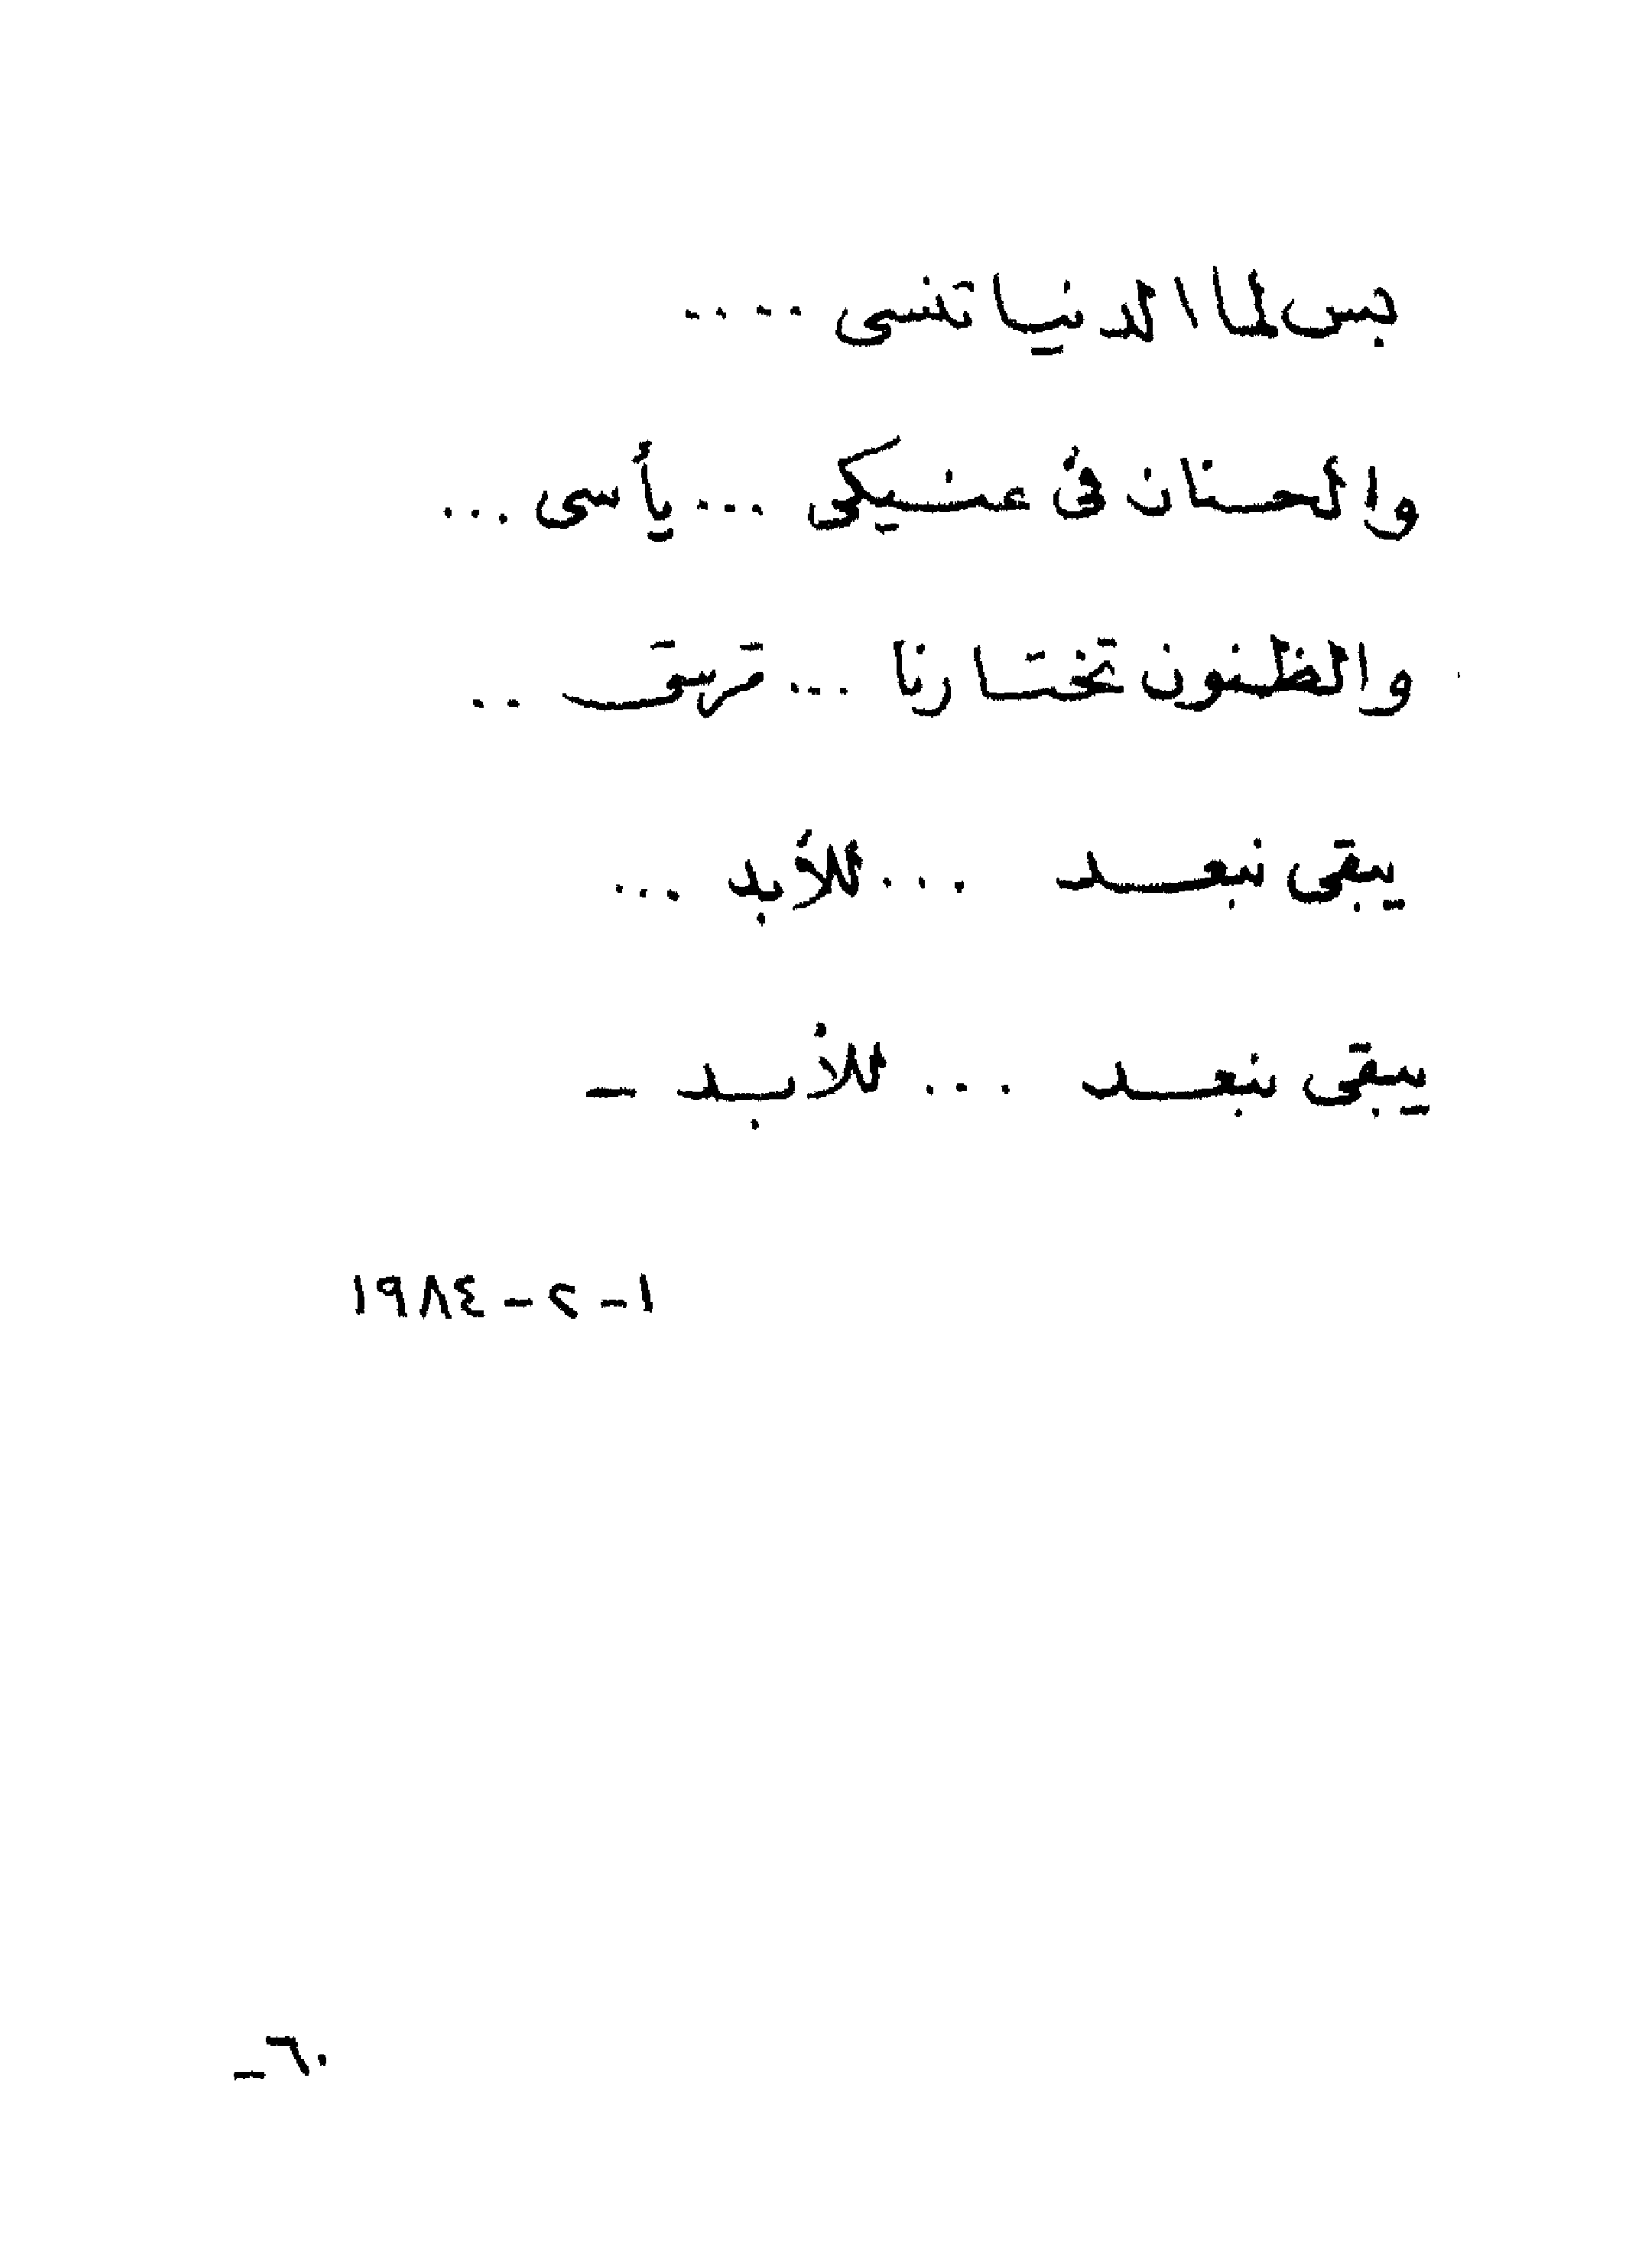 بس لما الدنيا تنسى ....
والحنان فى عنيكى ... يأسى ...
والظنون تختارنا ... ترسى ..
يبقى نبعد ... للأبد ...
يبقى نبعد ... للأبد -
١ - ٢ - ١٩٨٤
٦٠ -